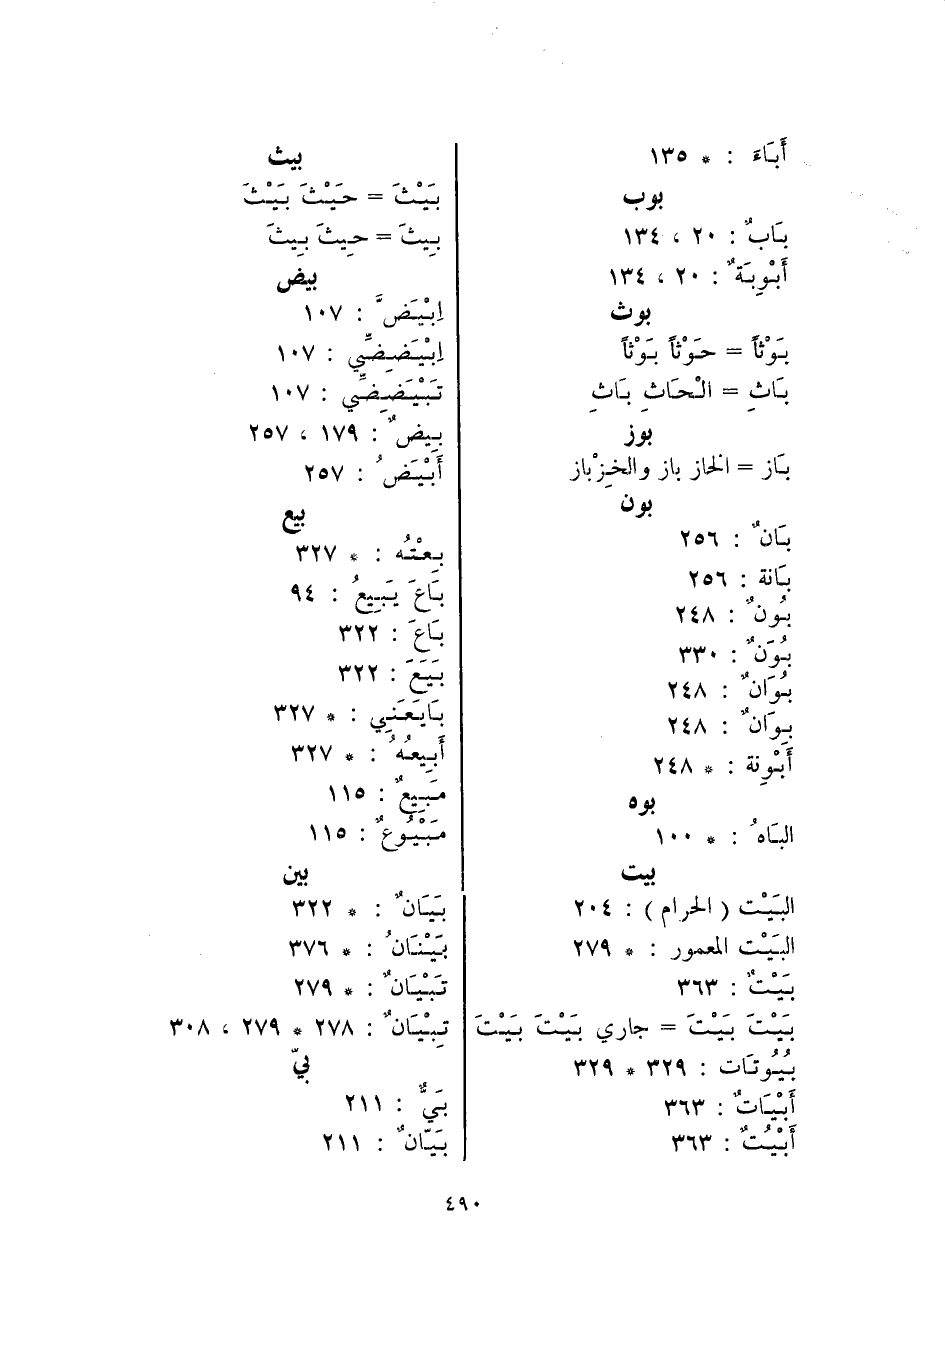 أَبَاءَ : * ١٣٥
بوب
بَابٌ : ٢٠ ، ١٣٤
أَبْوِبَةٌ : ٢٠ ، ١٣٤
بوث
بَوْثاً = حَوْثاً بَوْثاً
بَاثِ = الْحَاثِ بَاثِ
بوز
بَاز = الخاز باز والخِزْباز
بون
بَانٌ : ٢٥٦
بَانة : ٢٥٦
بُونٌ : ٢٤٨
بُوَنٌ : ٣٣٠
بُوَانٌ : ٢٤٨
بِوَانٌ : ٢٤٨
أَبْوِنة : * ٢٤٨
بوه
البَاهُ : * ١٠٠
بيت
البَيْت ( الحرام ) : ٢٠٤
البَيْت المعمور : * ٢٧٩
بَيْتٌ : ٣٦٣
بَيْتَ بَيْتَ = جاري بَيْتَ بَيْتَ
بُيُوتَات : ٣٢٩ * ٣٢٩
أَبْيَاتٌ : ٣٦٣
أَبْيُتٌ : ٣٦٣
بيث
بَيْثَ = حَيْثَ بَيْثَ
بِيثَ = حِيثَ بِيثَ
بيض
اِبْيَضَّ : ١٠٧
اِبْيَضِضِّي : ١٠٧
تَبْيَضِضِّي : ١٠٧
بِيضٌ : ١٧٩ ، ٢٥٧
أَبْيَضُ : ٢٥٧
بيع
بِعْتُه : * ٣٢٧
بَاعَ يَبِيعُ : ٩٤
بَاعَ : ٣٢٢
بَيَعَ : ٣٢٢
بَايَعَنِي : * ٣٢٧
أَبِيعُهُ : * ٣٢٧
مَبِيعٌ : ١١٥
مَبْيُوعٌ : ١١٥
بين
بَيَانٌ : * ٣٢٢
بَيْنَانُ : * ٣٧٦
تَبْيَانٌ : * ٢٧٩
تِبْيَانٌ : ٢٧٨ * ٢٧٩ ، ٣٠٨
بيّ
بَيٌّ : ٢١١
بَيّانٌ : ٢١١
٤٩٠